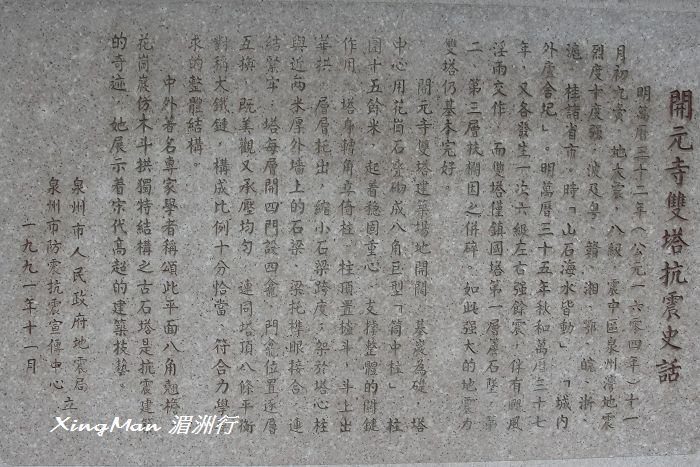 開元寺雙塔抗震史話
明萬曆三十二年（公元一六零四年）十一
月初九夜 地大震 八級 震中區泉州灣地震
烈度十度强，波及粤、贛、湘、鄂、皖、浙、
滬、桂諸省市。時「山石海水皆動」，「城内
外廬舍圮」。明萬曆三十五年秋和萬曆三十七
年，又各發生一次六級左右强餘震，伴有颶風
淫雨交作，而雙塔僅鎮國塔第一層蓋石墜，第
二、第三層扶欄因之併碎。如此强大的地震力
雙塔仍基本完好。
開元寺雙塔建築場地開闊，基岩爲礎，塔
中心用花崗石叠砌成八角巨型「筒中柱」，柱
圍十五餘米，起着穩固重心，支撑整體的關鍵
作用。塔身轉角立倚柱，柱頂置櫨斗，斗上出
華拱，層層托出，縮小石梁跨度；架於塔心柱
與近兩米厚外墻上的石梁，梁托榫眼接合，連
結緊牢；塔每層開四門設四龕，門龕位置逐層
互换，既美觀又承壓均匀；連同塔頂八條平衡
對稱大鐵鏈，構成比例十分恰當、符合力學
求的整體結構。
中外著名專家學者稱頌此平面八角翹檐
花崗岩仿木斗拱獨特結構之古石塔是抗震建築
的奇迹，她展示着宋代高超的建築技藝。
泉州市人民政府地震局
泉州市防震抗震宣傳中心 立
一九九一年十一月
XingMan 湄洲行